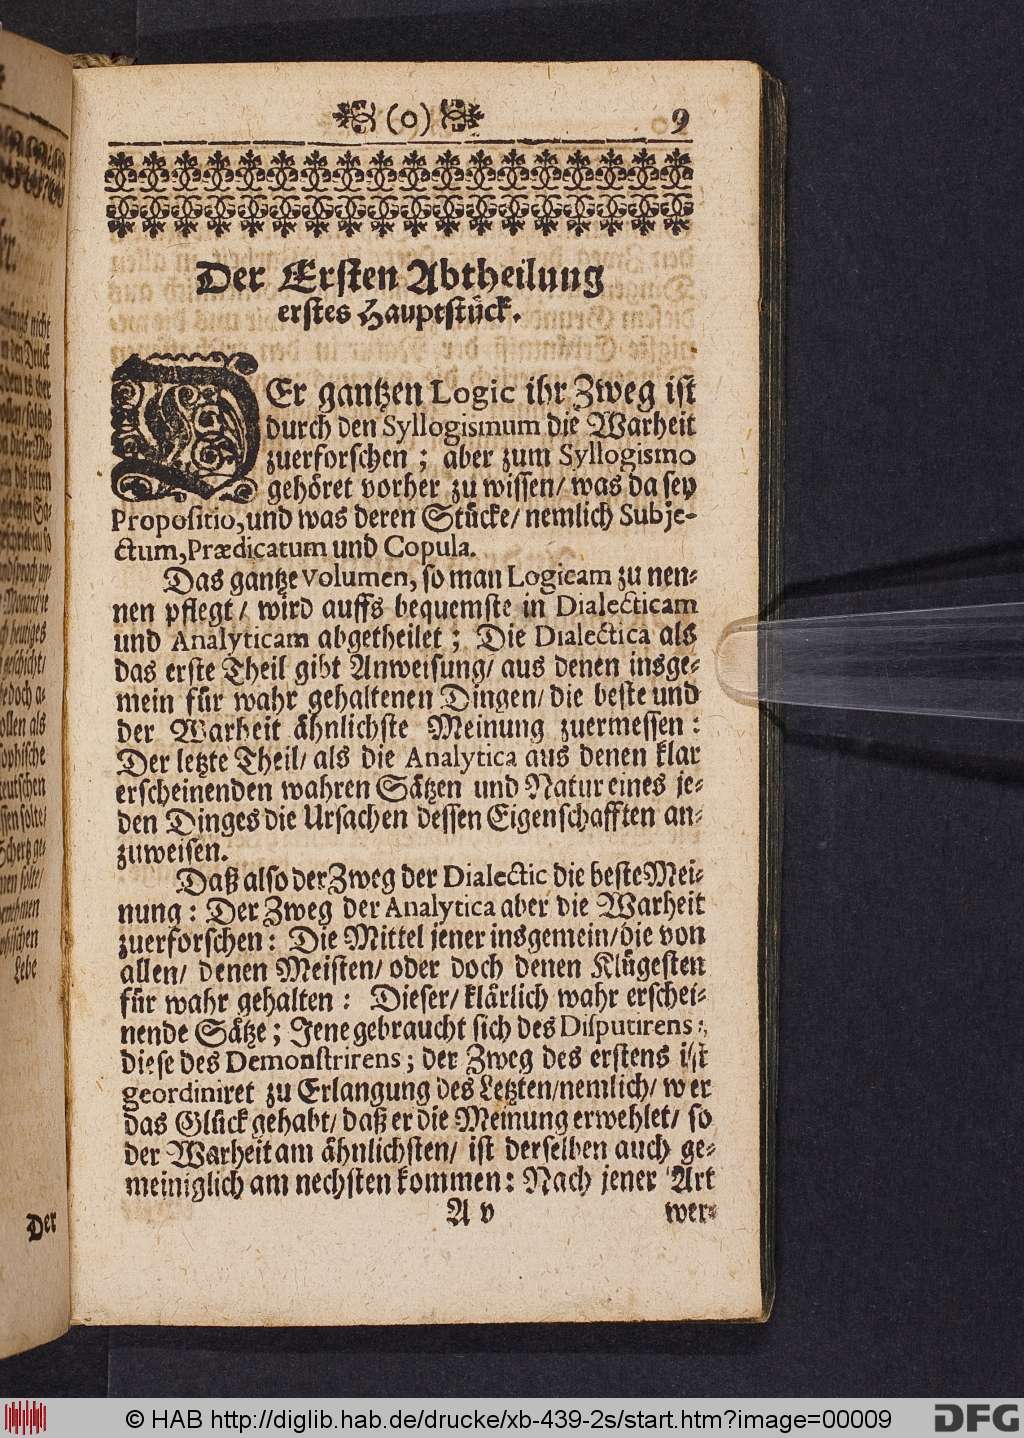 (o) 9
Der Ersten Abtheilung
erstes Hauptstück.
DEr gantzen Logic ihr Zweg ist
durch den Syllogismum die Warheit
zuerforschen ; aber zum Syllogismo
gehöret vorher zu wissen/ was da sey
Propositio, und was deren Stücke/ nemlich Subje-
ctum, Prædicatum und Copula.
Das gantze Volumen, so man Logicam zu nen-
nen pflegt/ wird auffs bequemste in Dialecticam
und Analyticam abgetheilet ; Die Dialectica als
das erste Theil gibt Anweisung/ aus denen insge-
mein für wahr gehaltenen Dingen/ die beste und
der Warheit ähnlichste Meinung zuermessen :
Der letzte Theil/ als die Analytica aus denen klar
erscheinenden wahren Sätzen und Natur eines je-
den Dinges die Ursachen dessen Eigenschafften an-
zuweisen.
Daß also der Zweg der Dialectic die beste Mei-
nung : Der Zweg der Analytica aber die Warheit
zuerforschen : Die Mittel jener insgemein/ die von
allen/ denen Meisten/ oder doch denen Klügesten
für wahr gehalten : Dieser/ klärlich wahr erschei-
nende Sätze ; Jene gebraucht sich des Disputirens ;
diese des Demonstrirens ; der Zweg des erstens ist
geordiniret zu Erlangung des Letzten/ nemlich/ wer
das Glück gehabt/ daß er die Meinung erwehlet/ so
der Warheit am ähnlichsten/ ist derselben auch ge-
meiniglich am nechsten kommen : Nach jener Art
A v wer-
Der
Lebe
© HAB http://diglib.hab.de/drucke/xb-439-2s/start.htm?image=00009
DFG